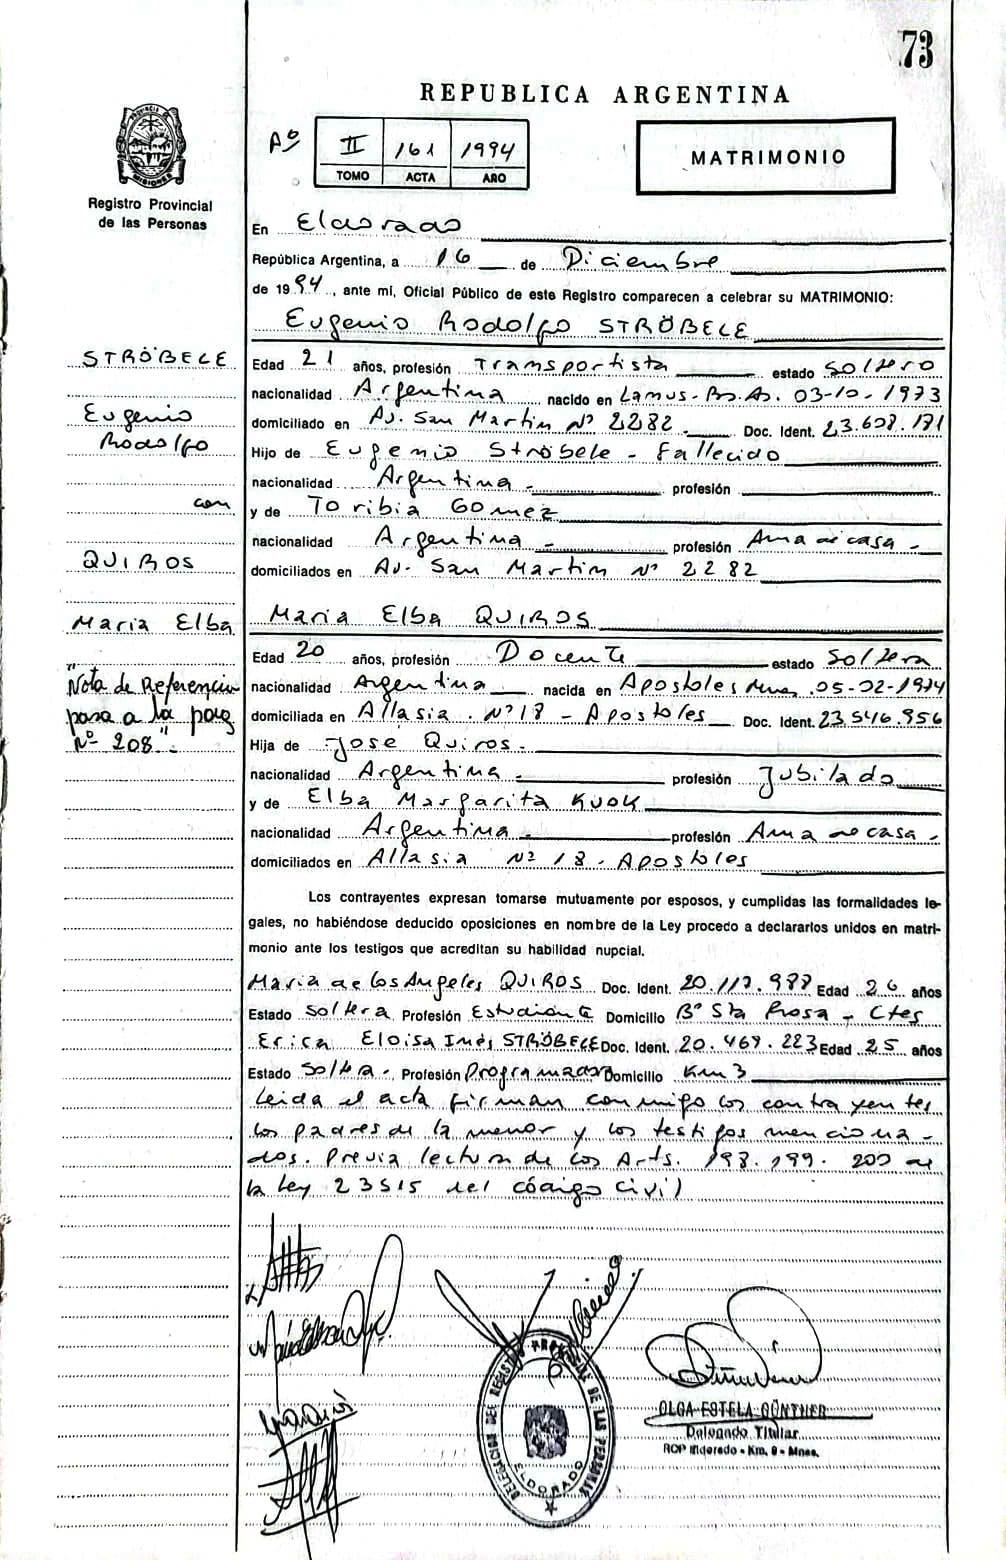 73
REPUBLICA ARGENTINA
Aº II 161 1994
TOMO ACTA AÑO
MATRIMONIO
PROVINCIA DE MISIONES
Registro Provincial
de las Personas
En Eldorado
República Argentina, a 16 de Diciembre
de 1994, ante mí, Oficial Público de este Registro comparecen a celebrar su MATRIMONIO:
Eugenio Rodolfo STRÖBELE
STRÖBELE
Eugenio
Rodolfo
con
QUIROS
Maria Elba
"Nota de Referencia
pasa a la pag
Nº 208".
Edad 21 años, profesión Transportista estado Soltero
nacionalidad Argentina nacido en Lanus - Bs. As. 03-10-1973
domiciliado en Av. San Martin Nº 2282.- Doc. Ident. 23.608.181
Hijo de Eugenio Ströbele - Fallecido
nacionalidad Argentina.- profesión
y de Toribia Gomez
nacionalidad Argentina - profesión Ama de casa -
domiciliados en Av. San Martin Nº 2282
Maria Elba QUIROS
Edad 20 años, profesión Docente estado Soltera
nacionalidad Argentina nacida en Apostoles Mnes. 05-02-1974
domiciliada en Allasia. Nº 18 - Apostoles Doc. Ident. 23.546.956
Hija de Jose Quiros.-
nacionalidad Argentina.- profesión Jubilado
y de Elba Margarita KUOK
nacionalidad Argentina.- profesión Ama de casa -
domiciliados en Allasia Nº 18 - Apostoles
Los contrayentes expresan tomarse mutuamente por esposos, y cumplidas las formalidades le-
gales, no habiéndose deducido oposiciones en nombre de la Ley procedo a declararlos unidos en matri-
monio ante los testigos que acreditan su habilidad nupcial.
Maria de los Angeles QUIROS Doc. Ident. 20.117.988 Edad 26 años
Estado Soltera Profesión Estudiante Domicilio Bº Sta Rosa - Ctes
Erica Eloisa Inés STRÖBELE Doc. Ident. 20.469.223 Edad 25 años
Estado Soltera - Profesión Programadora Domicilio Km 3
Leida el acta firman conmigo los contrayentes
los padres de la menor y los testigos menciona-
dos. Previa lectura de los Arts. 198. 199. 200 de
la Ley 23515 del código civil
DELEGACION DEL REGISTRO PROVINCIAL DE LAS PERSONAS
ELDORADO
OLGA ESTELA GÜNTHER
Delegado Titular
RCP Eldorado - Km. 9 - Mnes.